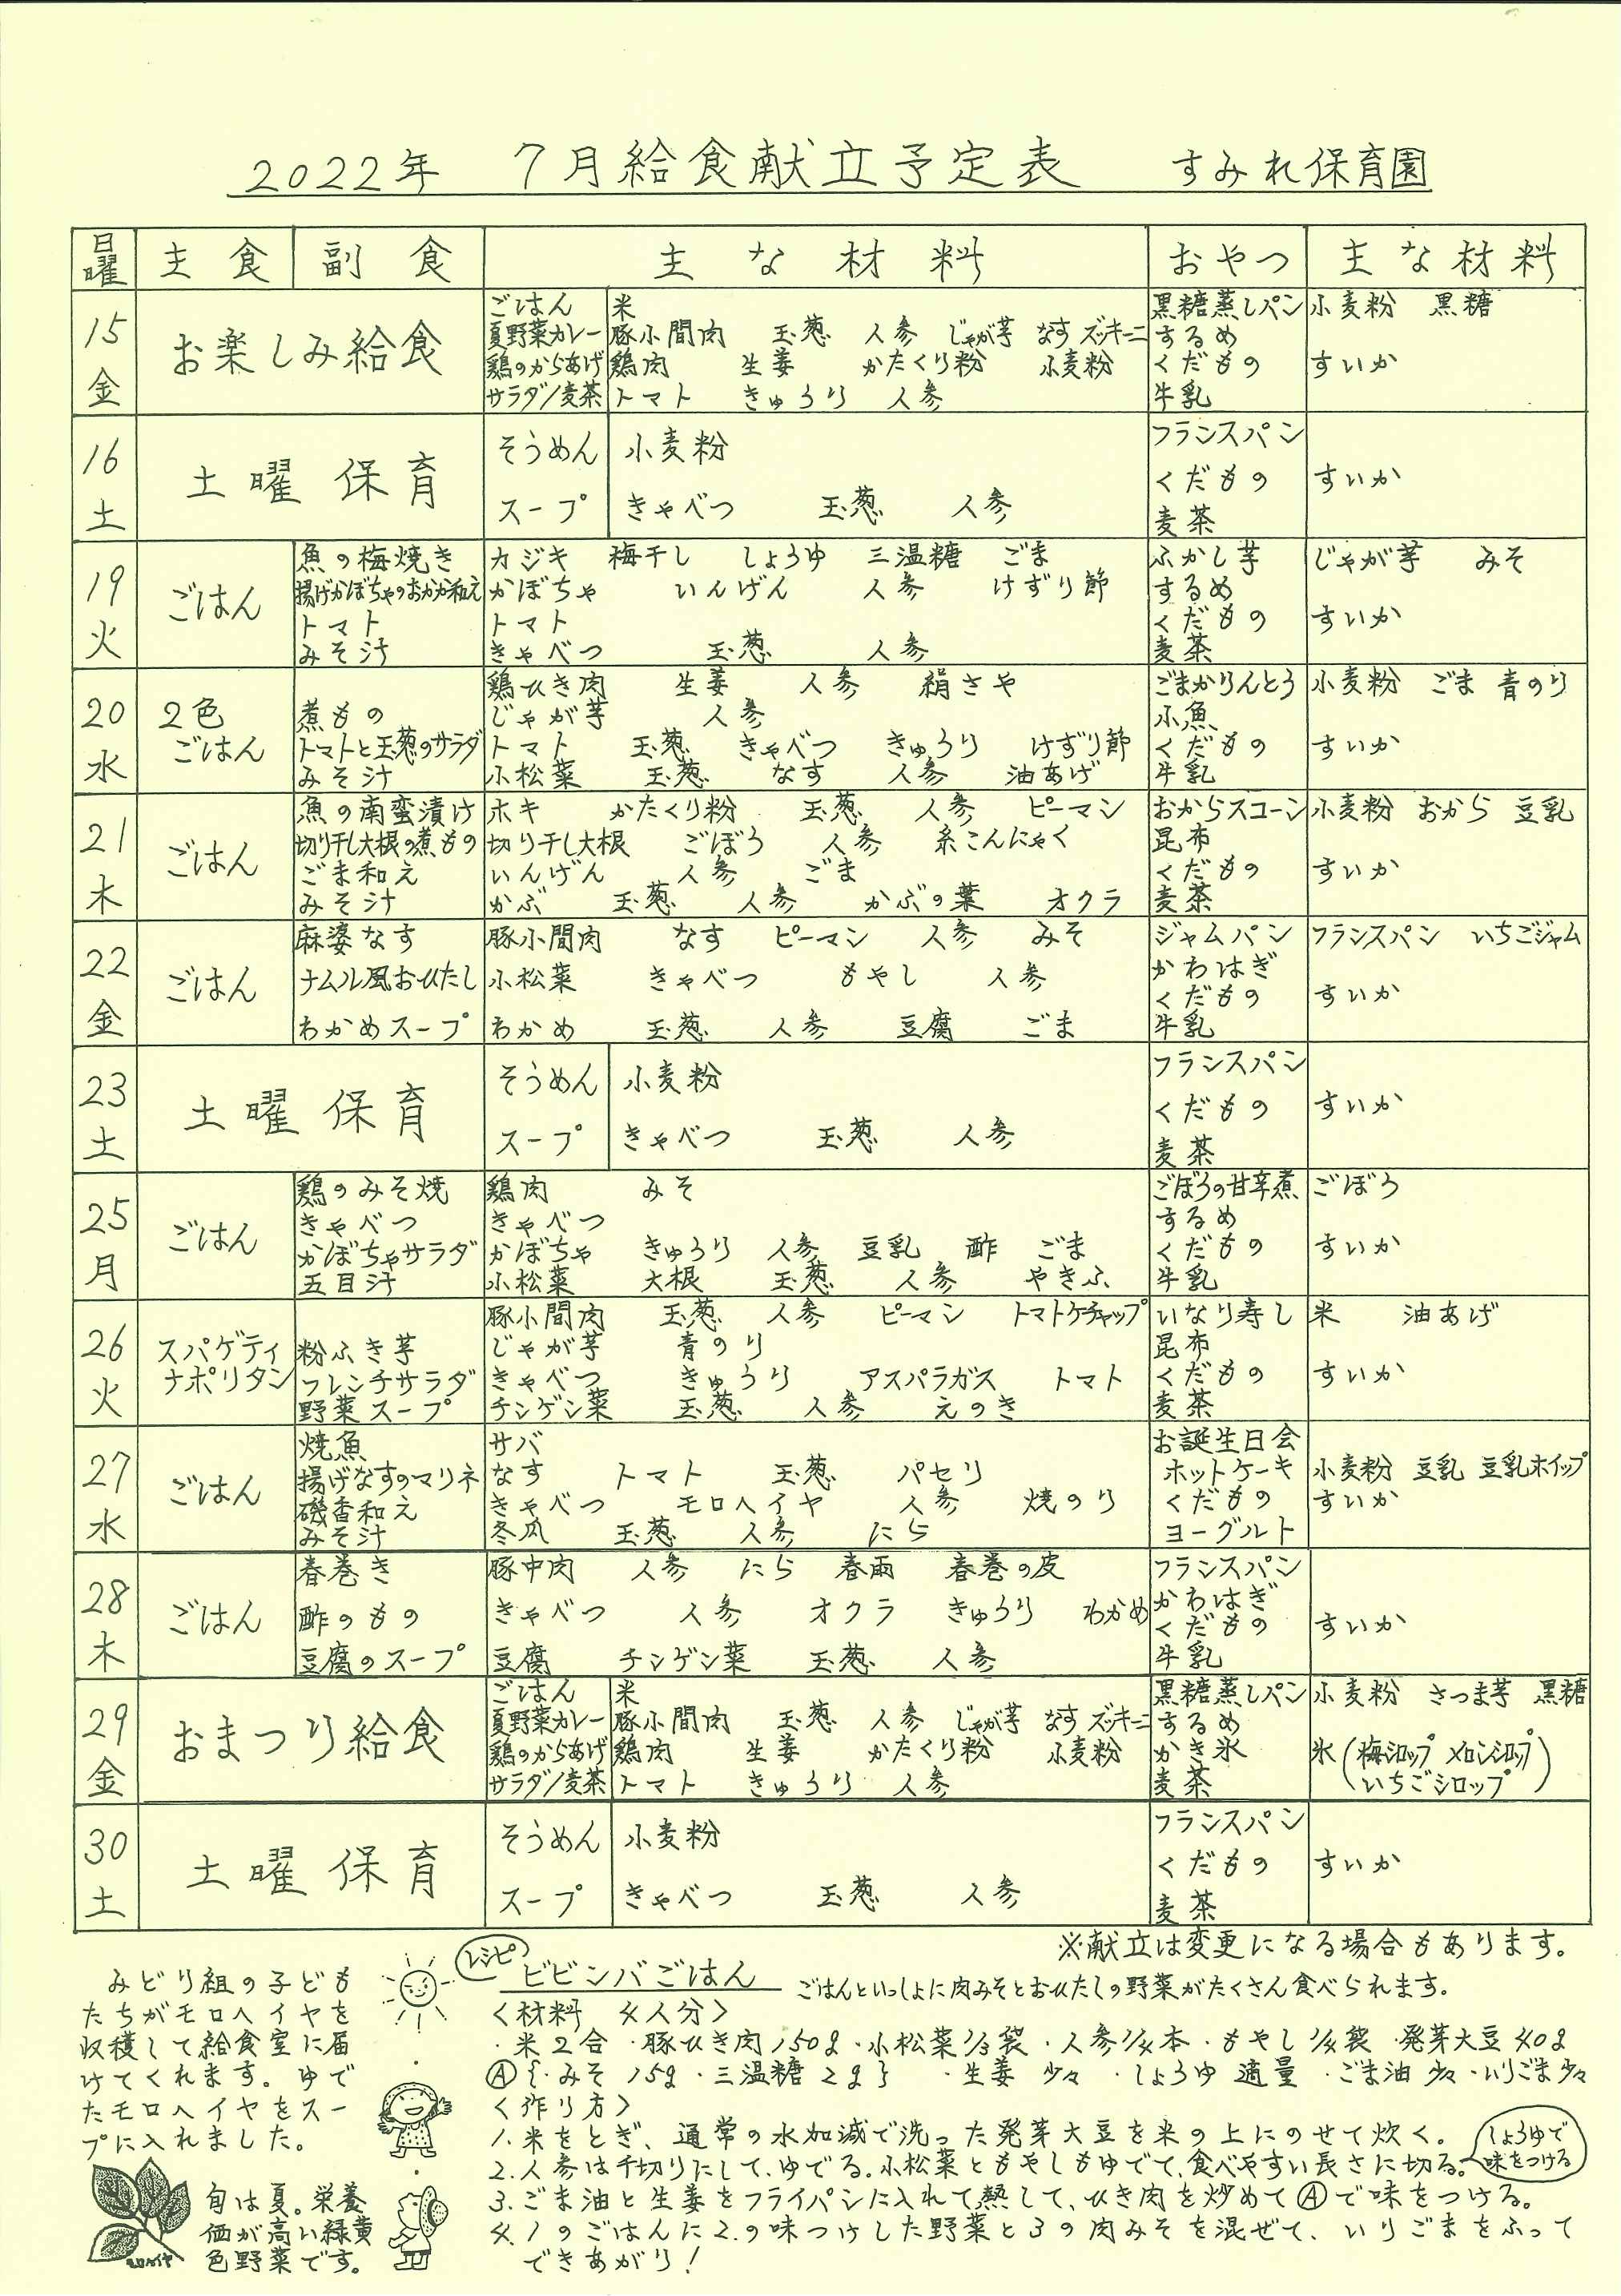 2022年 7月給食献立予定表 すみれ保育園
日曜 主食 副食 主な材料 おやつ 主な材料
15 金 お楽しみ給食
ごはん 米 黒糖蒸しパン 小麦粉 黒糖
夏野菜カレー 豚小間肉 玉葱 人参 じゃが芋 なす ズッキーニ するめ
鶏のからあげ 鶏肉 生姜 かたくり粉 小麦粉 くだもの すいか
サラダ/麦茶 トマト きゅうり 人参 牛乳
16 土 土曜保育
そうめん 小麦粉 フランスパン
くだもの すいか
スープ きゃべつ 玉葱 人参 麦茶
19 火 ごはん
魚の梅焼き カジキ 梅干し しょうゆ 三温糖 ごま ふかし芋 じゃが芋 みそ
揚げかぼちゃのおかか和え かぼちゃ いんげん 人参 けずり節 するめ
トマト トマト くだもの すいか
みそ汁 きゃべつ 玉葱 人参 麦茶
20 水 2色ごはん
鶏ひき肉 生姜 人参 絹さや ごまかりんとう 小麦粉 ごま 青のり
煮もの じゃが芋 人参 小魚
トマトと玉葱のサラダ トマト 玉葱 きゃべつ きゅうり けずり節 くだもの すいか
みそ汁 小松菜 玉葱 なす 人参 油あげ 牛乳
21 木 ごはん
魚の南蛮漬け ホキ かたくり粉 玉葱 人参 ピーマン おからスコーン 小麦粉 おから 豆乳
切り干し大根の煮もの 切り干し大根 ごぼう 人参 糸こんにゃく 昆布
ごま和え いんげん 人参 ごま くだもの すいか
みそ汁 かぶ 玉葱 人参 かぶの葉 オクラ 麦茶
22 金 ごはん
麻婆なす 豚小間肉 なす ピーマン 人参 みそ ジャムパン フランスパン いちごジャム
ナムル風おひたし 小松菜 きゃべつ もやし 人参 かわはぎ
くだもの すいか
わかめスープ わかめ 玉葱 人参 豆腐 ごま 牛乳
23 土 土曜保育
そうめん 小麦粉 フランスパン
くだもの すいか
スープ きゃべつ 玉葱 人参 麦茶
25 月 ごはん
鶏のみそ焼 鶏肉 みそ ごぼうの甘辛煮 ごぼう
きゃべつ きゃべつ するめ
かぼちゃサラダ かぼちゃ きゅうり 人参 豆乳 酢 ごま くだもの すいか
五目汁 小松菜 大根 玉葱 人参 やきふ 牛乳
26 火 スパゲティナポリタン
豚小間肉 玉葱 人参 ピーマン トマトケチャップ いなり寿し 米 油あげ
粉ふき芋 じゃが芋 青のり 昆布
フレンチサラダ きゃべつ きゅうり アスパラガス トマト くだもの すいか
野菜スープ チンゲン菜 玉葱 人参 えのき 麦茶
27 水 ごはん
焼魚 サバ お誕生日会
揚げなすのマリネ なす トマト 玉葱 パセリ ホットケーキ 小麦粉 豆乳 豆乳ホイップ
磯香和え きゃべつ モロヘイヤ 人参 焼のり くだもの すいか
みそ汁 冬瓜 玉葱 人参 にら ヨーグルト
28 木 ごはん
春巻き 豚中肉 人参 にら 春雨 春巻の皮 フランスパン
酢のもの きゃべつ 人参 オクラ きゅうり わかめ かわはぎ
くだもの すいか
豆腐のスープ 豆腐 チンゲン菜 玉葱 人参 牛乳
29 金 おまつり給食
ごはん 米 黒糖蒸しパン 小麦粉 さつま芋 黒糖
夏野菜カレー 豚小間肉 玉葱 人参 じゃが芋 なす ズッキーニ するめ
鶏のからあげ 鶏肉 生姜 かたくり粉 小麦粉 かき氷 氷(梅シロップ メロンシロップ
サラダ/麦茶 トマト きゅうり 人参 麦茶 いちごシロップ)
30 土 土曜保育
そうめん 小麦粉 フランスパン
くだもの すいか
スープ きゃべつ 玉葱 人参 麦茶
※献立は変更になる場合もあります。
みどり組の子ども
たちがモロヘイヤを
収穫して給食室に届
けてくれます。ゆで
たモロヘイヤをスー
プに入れました。
旬は夏。栄養
価が高い緑黄
色野菜です。
モロヘイヤ
レシピ ビビンバごはん ごはんといっしょに肉みそとおひたしの野菜がたくさん食べられます。
<材料 4人分>
・米2合 ・豚ひき肉150g ・小松菜1/3袋 ・人参1/4本 ・もやし1/4袋 ・発芽大豆40g
Ⓐ{・みそ15g ・三温糖2g} ・生姜 少々 ・しょうゆ 適量 ・ごま油 少々 ・いりごま少々
<作り方>
1.米をとぎ、通常の水加減で洗った発芽大豆を米の上にのせて炊く。
2.人参は千切りにして、ゆでる。小松菜ともやしもゆでて、食べやすい長さに切る。
しょうゆで
味をつける
3.ごま油と生姜をフライパンに入れて熱して、ひき肉を炒めてⒶで味をつける。
4.1のごはんに2.の味つけした野菜と3の肉みそを混ぜて、いりごまをふって
できあがり!